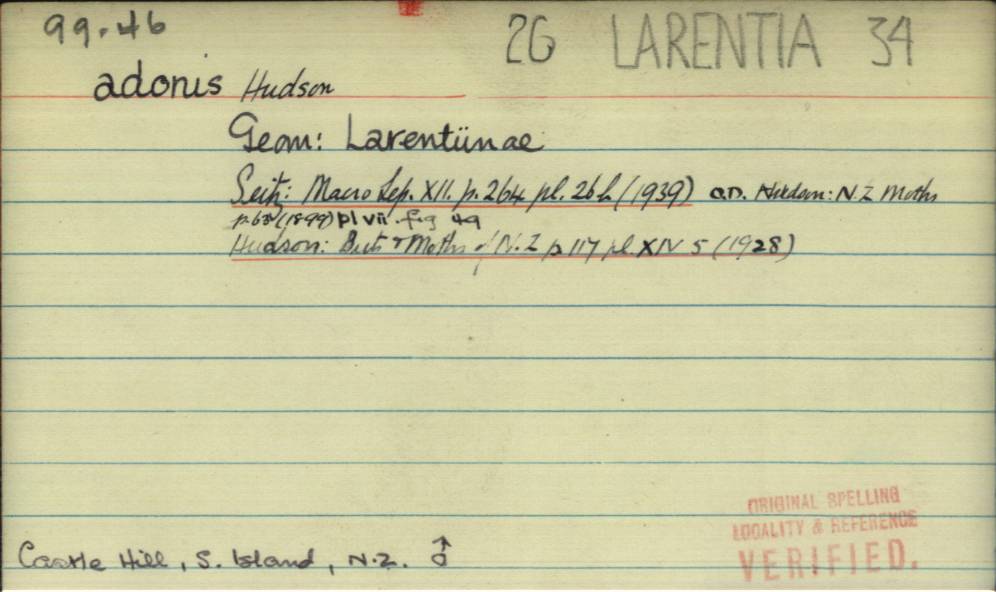 99.46
2G LARENTIA 34
adonis Hudson
Geom: Larentiinae
Seitz: Macro Lep. XII. p. 264 pl. 26 h (1939) O.D. Hudson: N.Z Moths
p. 63 (1899) pl vii. fig 49
Hudson: Buts & Moths of N.Z p 117 pl. XIV 5 (1928)
Castle Hill, S. Island, N.Z. ♂
ORIGINAL SPELLING
LOCALITY & REFERENCE
VERIFIED.